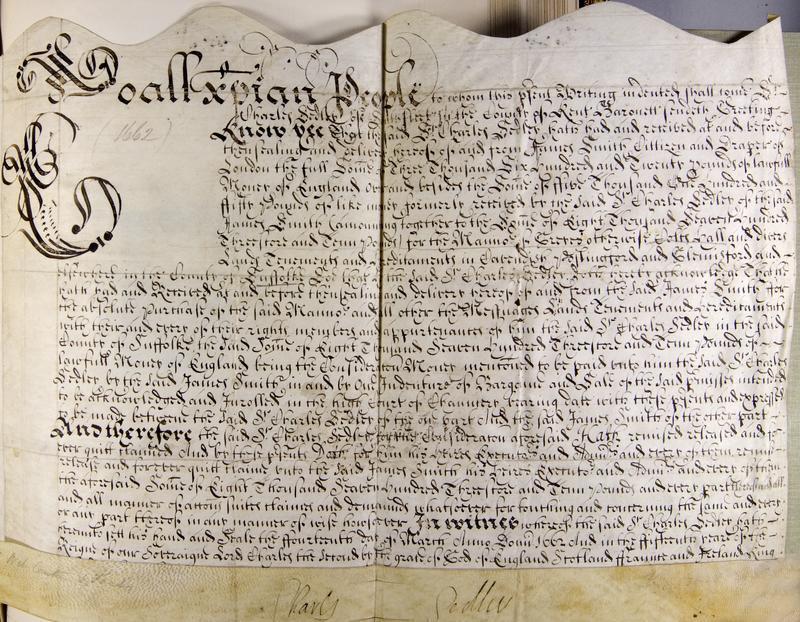 To all xp̄ian People to whom this pn̄t Writing indented shall come Sr
Charles Sedley of in the County of Kent Baronett sendeth Greeting
(1662) Know yee that the said Sr Charles Sedley hath had and received at and before
thensealing and delivery hereof of and from James Smith Cittizen and Draper of
London the full Some of Three Thousand Six Hundred and Twenty Pounds of lawfull
Money of England Over and besides the Some of ffive Thousand One Hundred and
ffifty Pounds of like money formerly received by the said Sr Charles Sedley of the said
James Smith Amounting together to the Some of Eight Thousand Seaven Hundred
Threescore and Tenn Pounds for the Mannor of Greyes otherwise Colts Hall and divers
Lands Tenements and Hereditaments in Cavendish Possingford and Glemsford and
elsewhere in the County of Suffolke Soe that the said Sr Charles Sedley doth hereby acknowledge That he
hath had and Received at and before thensealing and delivery hereof of and from the said James Smith for
the absolute Purchase of the said Mannor and all other the Messuages Lands Tenements and Hereditaments
with their and every of their rights members and appurtenances of him the said Sr Charles Sedley in the said
County of Suffolke the said Some of Eight Thousand Seaven Hundred Threescore and Tenn Pounds of
lawfull Money of England being the Consideracon Money mentioned to be paid unto him the said Sr Charles
Sedley by the said James Smith in and by One Indenture of Bargaine and Sale of the said pmisses intended
to be acknowledged and Inrolled in the high Court of Chancery bearing date with these psents and expressed
to be made betweene the said Sr Charles Sedley of the one part And the said James Smith of the other part
And therefore the said Sr Charles Sedley for the Consideracon aforesaid Hath remised released and for
ever quit claimed And by these psents Doth for him his Heires Executors and Admrs and every of them remise
release and forever quitt claime unto the said James Smith his Heires Executors and Admrs and every of them
the aforesaid Some of Eight Thousand Seaven Hundred Threescore and Tenn Pounds and every part thereof and all
and all manner of accons suites claimes and demands whatsoever for touching and concerning the same and every
or any part thereof in any manner of wise howsoever In witnes whereof the said Sr Charles Sedley hath
hereunto sett his hand and Seale the ffourteenth day of March Anno Dom̄ 1662 And in the fifteenth yeare of the
Reigne of our Soveraigne Lord Charles the Second by the grace of God of England Scotland ffraunce and Ireland King
Charles Sedley